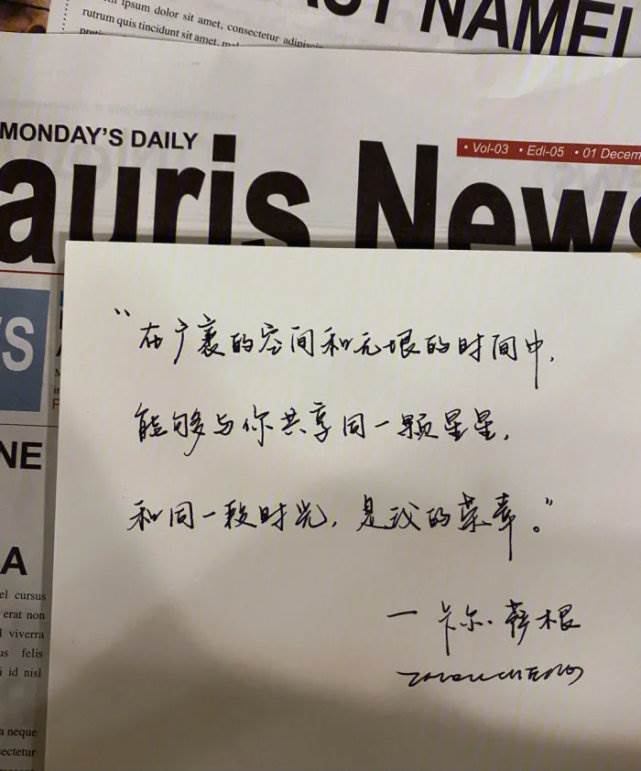 ipsum dolor sit amet, consectetur
rutrum quis tincidunt sit amet,
NAME
MONDAY'S DAILY
• Vol-03 • Edi-05 • 01 Decem
auris News
S
NE
A
el cursus
erat non
viverra
us felis
id nisl
a neque
sectetur
“在广袤的空间和无垠的时间中，
能够与你共享同一颗星星，
和同一段时光，是我的荣幸。”
— 卡尔·萨根